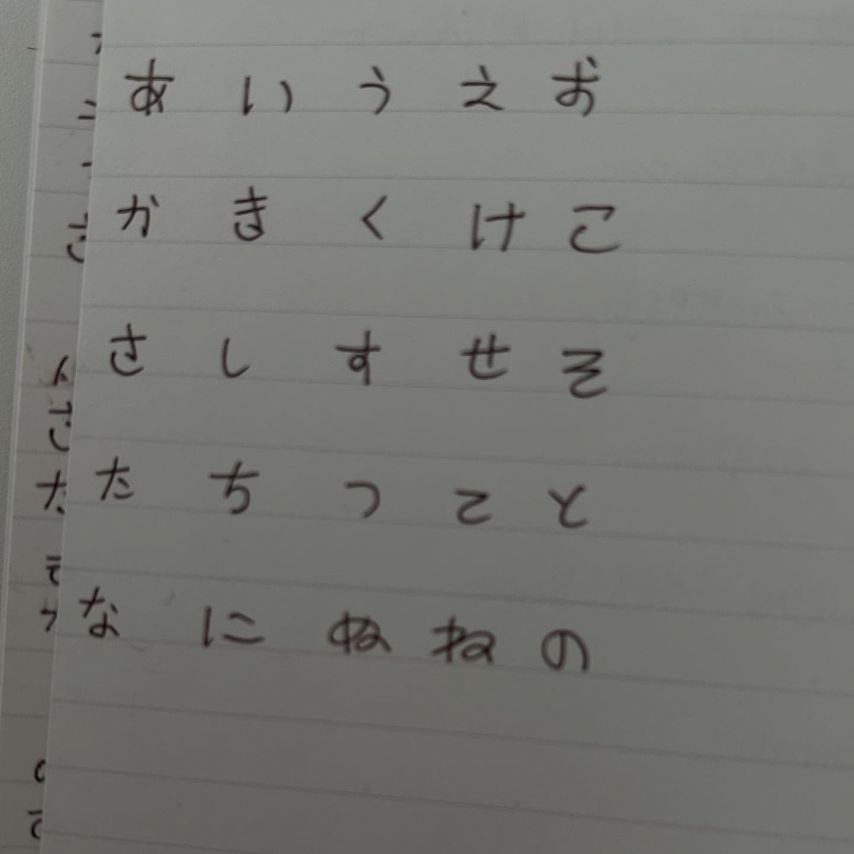 あ い う え お
か き く け こ
さ し す せ そ
た ち つ て と
な に ぬ ね の